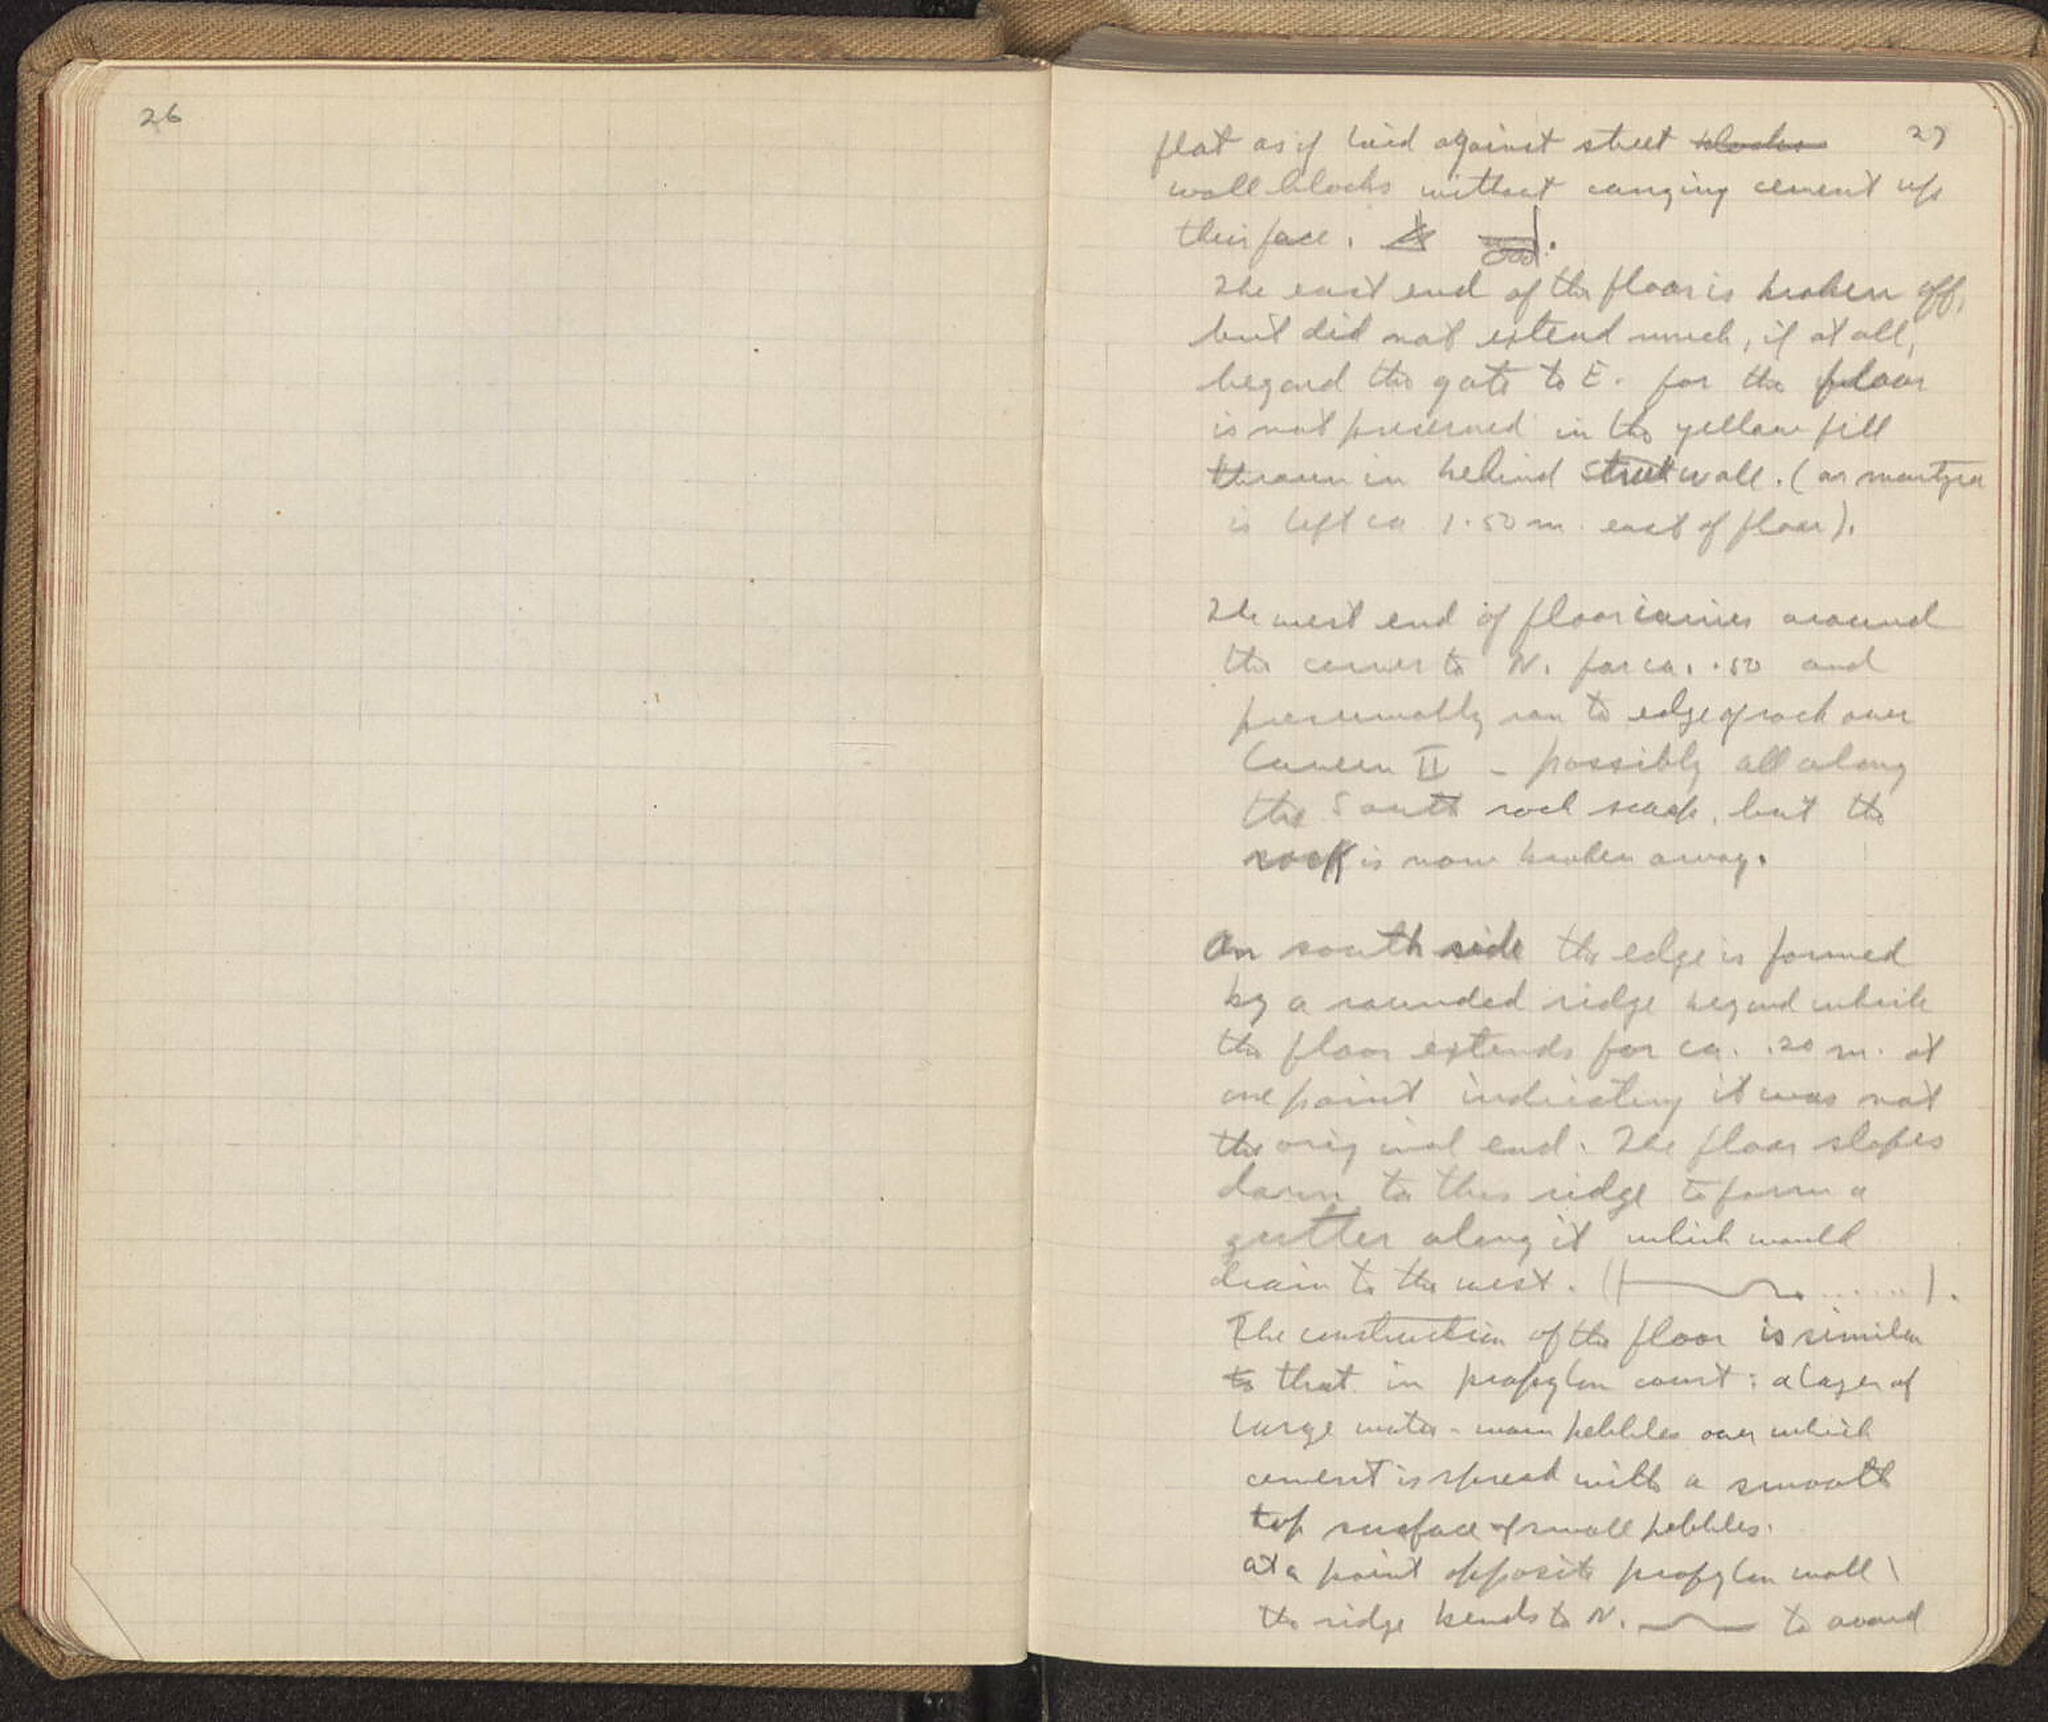 26
27
flat as if laid against street blocks
wall blocks without carrying cement up
their face.
The east end of the floor is broken off,
but did not extend much, if at all,
beyond the gate to E. for the floor
is not preserved in the yellow fill
thrown in behind street wall. (as martyra
is left ca 1.50 m. east of floor).
The west end of floor carries around
the corner to N. for ca. .50 and
presumably ran to edge of rock over
Cavern II - possibly all along
the South rock scarp, but the
rock is now broken away.
On south side the edge is formed
by a rounded ridge beyond which
the floor extends for ca. .20 m. at
one point indicating it was not
the original end. The floor slopes
down to this ridge to form a
gutter along it which would
drain to the west. ( ...... ).
The construction of the floor is similar
to that in propylon court: a layer of
large water-worn pebbles over which
cement is spread with a smooth
top surface of small pebbles.
at a point opposite propylon wall
the ridge bends to N. to avoid